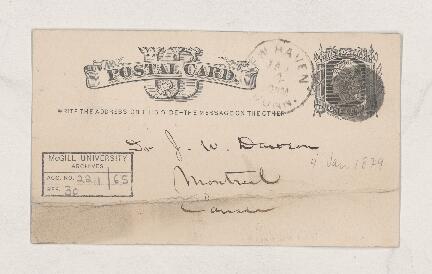 POSTAL CARD.
NEW HAVEN
JAN
2
CONN.
WRITE THE ADDRESS ON THIS SIDE-THE MESSAGE ON THE OTHER
Dr J. W. Dawson
Montreal
Canada
4 Jan 1879
McGILL UNIVERSITY
ARCHIVES
ACC. NO. 2211 65
REF. 30